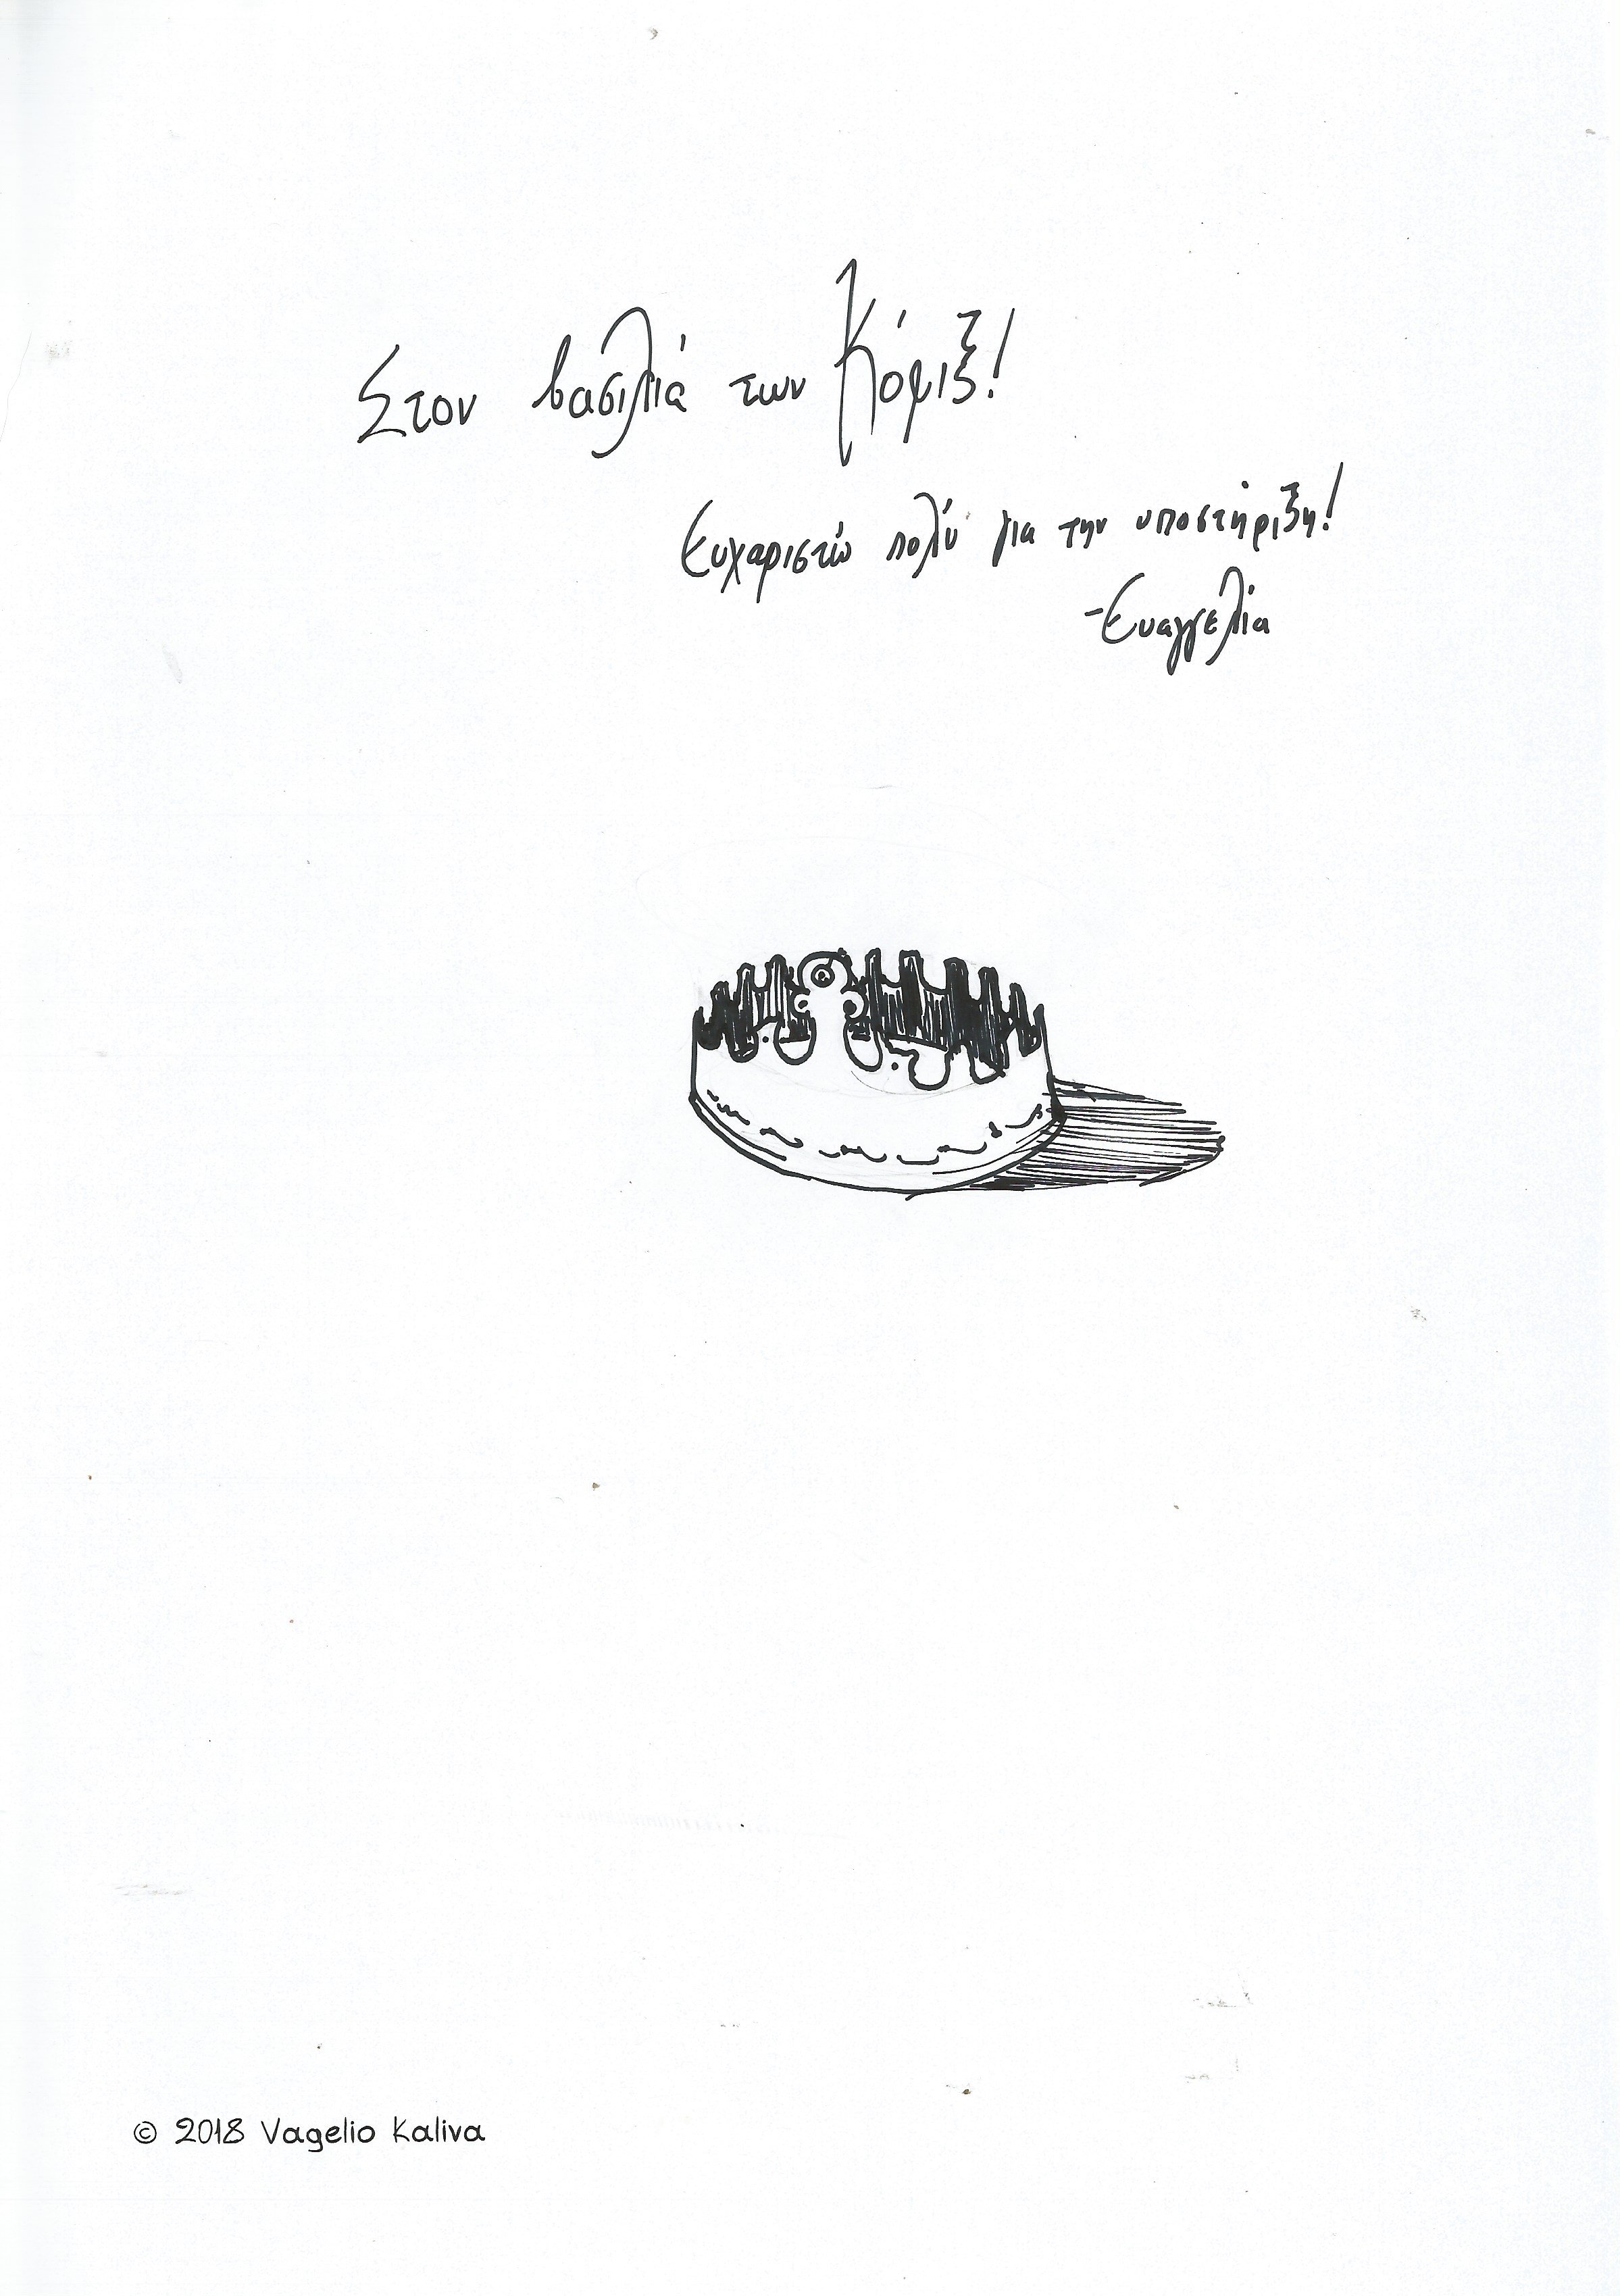 Στον βασιλιά των Κόμιξ!
Ευχαριστώ πολύ για την υποστήριξη!
-Ευαγγελία
© 2018 Vagelio Kaliva